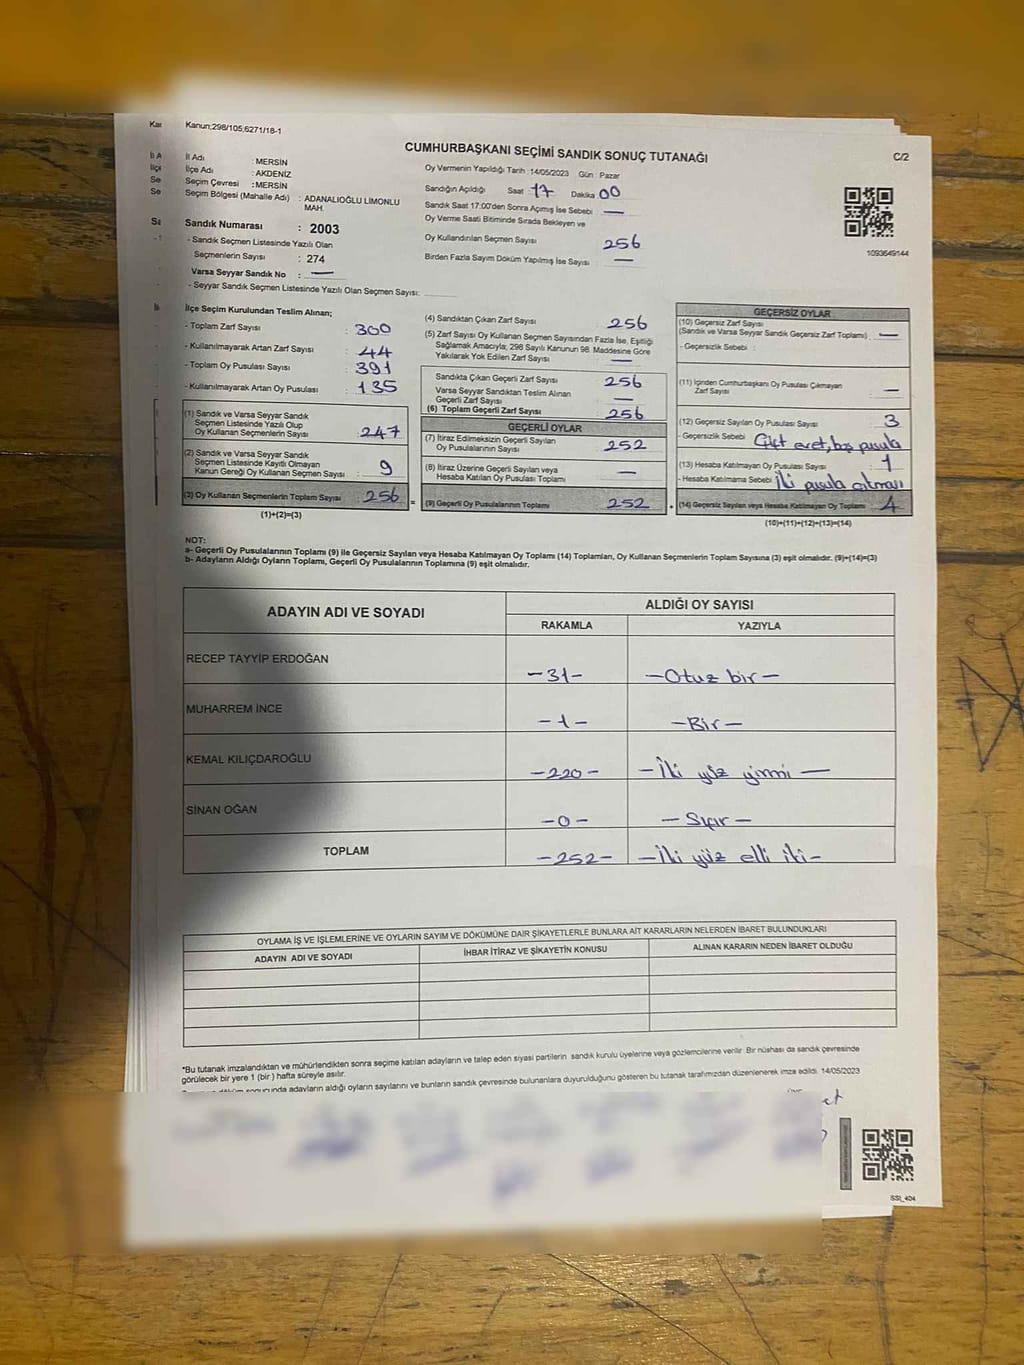 Kar
Kanun;298/105;6271/18-1
CUMHURBAŞKANI SEÇİMİ SANDIK SONUÇ TUTANAĞI
C/2
İl A
İl Adı : MERSİN
İlçe
İlçe Adı : AKDENİZ
Se
Seçim Çevresi : MERSİN
Se
Seçim Bölgesi (Mahalle Adı) : ADANALIOĞLU LIMONLU MAH.
Oy Vermenin Yapıldığı Tarih : 14/05/2023 Gün : Pazar
Sandığın Açıldığı Saat : 17 Dakika 00
Sandık Saat 17:00'den Sonra Açımış İse Sebebi —
Oy Verme Saati Bitiminde Sırada Bekleyen ve
Oy Kullandırılan Seçmen Sayısı 256
Birden Fazla Sayım Döküm Yapılmış İse Sayısı : —
1093649144
Sandık Numarası : 2003
- Sandık Seçmen Listesinde Yazılı Olan
Seçmenlerin Sayısı : 274
Varsa Seyyar Sandık No : —
- Seyyar Seçmen Listesinde Yazılı Olan Seçmen Sayısı:
İlçe Seçim Kurulundan Teslim Alınan;
- Toplam Zarf Sayısı : 300
- Kullanılmayarak Artan Zarf Sayısı : 44
- Toplam Oy Pusulası Sayısı : 391
- Kullanılmayarak Artan Oy Pusulası : 135
(1) Sandık ve Varsa Seyyar Sandık
Seçmen Listesinde Yazılı Olup
Oy Kullanan Seçmenlerin Sayısı : 247
(2) Sandık ve Varsa Seyyar Sandık
Seçmen Listesinde Kayıtlı Olmayan
Kanun Gereği Oy Kullanan Seçmen Sayısı : 9
(3) Oy Kullanan Seçmenlerin Toplam Sayısı 256
(1)+(2)=(3)
(4) Sandıktan Çıkan Zarf Sayısı : 256
(5) Zarf Sayısı Oy Kullanan Seçmen Sayısından Fazla İse, Eşitliği
Sağlamak Amacıyla; 298 Sayılı Kanunun 98. Maddesine Göre
Yakılarak Yok Edilen Zarf Sayısı : —
Sandıkta Çıkan Geçerli Zarf Sayısı 256
Varsa Seyyar Sandıktan Teslim Alınan
Geçerli Zarf Sayısı : —
(6) Toplam Geçerli Zarf Sayısı 256
GEÇERLİ OYLAR
(7) İtiraz Edilmeksizin Geçerli Sayılan
Oy Pusulalarının Sayısı : 252
(8) İtiraz Üzerine Geçerli Sayılan veya
Hesaba Katılan Oy Pusulası Toplamı —
= (9) Geçerli Oy Pusulalarının Toplamı 252
GEÇERSİZ OYLAR
(10) Geçersiz Zarf Sayısı
(Sandık ve Varsa Seyyar Sandık Geçersiz Zarf Toplamı) —
- Geçersizlik Sebebi :
(11) İçinden Cumhurbaşkanı Oy Pusulası Çıkmayan
Zarf Sayısı : —
(12) Geçersiz Sayılan Oy Pusulası Sayısı : 3
- Geçersizlik Sebebi Çift evet, boş pusula
(13) Hesaba Katılmayan Oy Pusulası Sayısı : 1
- Hesaba Katılmama Sebebi İki pusula çıkması
+ (14) Geçersiz Sayılan veya Hesaba Katılmayan Oy Toplamı 4
(10)+(11)+(12)+(13)=(14)
NOT:
a- Geçerli Oy Pusulalarının Toplamı (9) ile Geçersiz Sayılan veya Hesaba Katılmayan Oy Toplamı (14) Toplamları, Oy Kullanan Seçmenlerin Toplam Sayısına (3) eşit olmalıdır. (9)+(14)=(3)
b- Adayların Aldığı Oyların Toplamı, Geçerli Oy Pusulalarının Toplamına (9) eşit olmalıdır.
ADAYIN ADI VE SOYADI
ALDIĞI OY SAYISI
RAKAMLA YAZIYLA
RECEP TAYYİP ERDOĞAN -31- -Otuz bir-
MUHARREM İNCE -1- -Bir-
KEMAL KILIÇDAROĞLU -220- -İki yüz yirmi-
SİNAN OĞAN -0- -Sıfır-
TOPLAM -252- -İki yüz elli iki-
OYLAMA İŞ VE İŞLEMLERİNE VE OYLARIN SAYIM VE DÖKÜMÜNE DAİR ŞİKAYETLERLE BUNLARA AİT KARARLARIN NELERDEN İBARET BULUNDUKLARI
ADAYIN ADI VE SOYADI İHBAR İTİRAZ VE ŞİKAYETİN KONUSU ALINAN KARARIN NEDEN İBARET OLDUĞU
*Bu tutanak imzalandıktan ve mühürlendikten sonra seçime katılan adayların ve talep eden siyasi partilerin sandık kurulu üyelerine veya gözlemcilerine verilir. Bir nüshası da sandık çevresinde
görülecek bir yere 1 (bir ) hafta süreyle asılır.
döküm sonucunda adayların aldığı oyların sayılarını ve bunların sandık çevresinde bulunanlara duyurulduğunu gösteren bu tutanak tarafımızdan düzenlenerek imza edildi. 14/05/2023
SSI_404